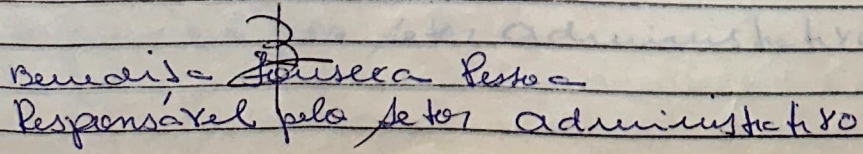 Benedita Fonseca Pessoa
Responsável pelo setor administrativo